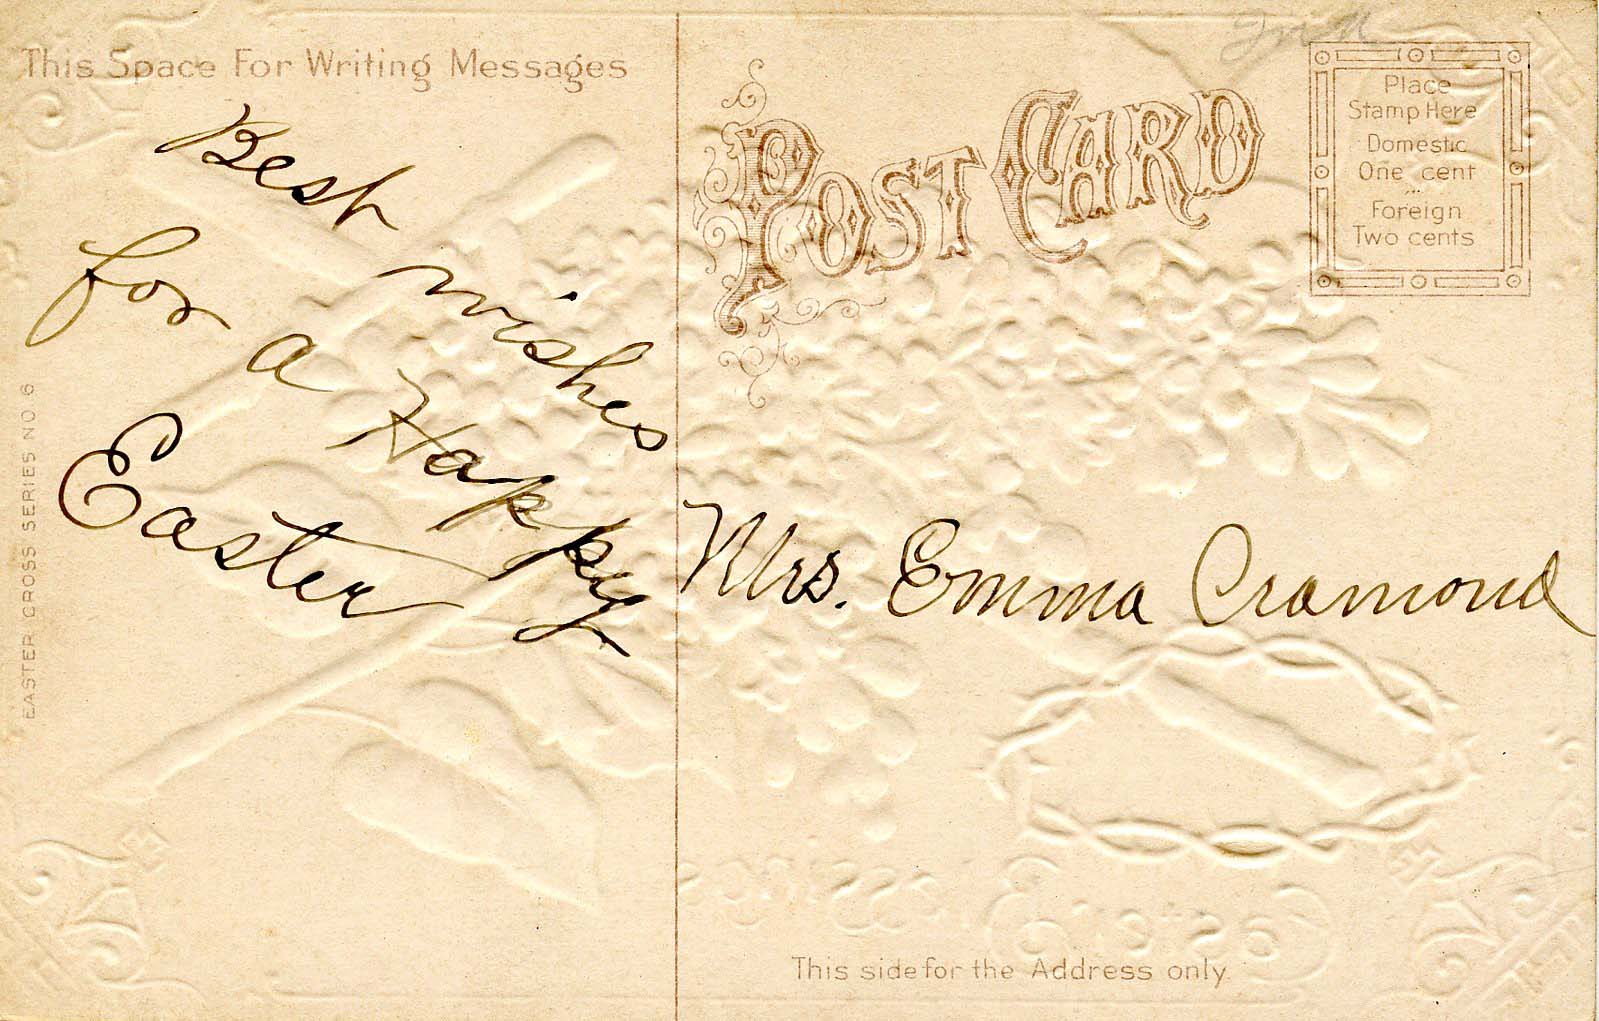 This Space For Writing Messages
Best wishes
for a Happy
Easter
EASTER CROSS SERIES NO 6
POST CARD
Place
Stamp Here
Domestic
One cent
Foreign
Two cents
Mrs. Emma Cramond
Easter Blessings
This side for the Address only.